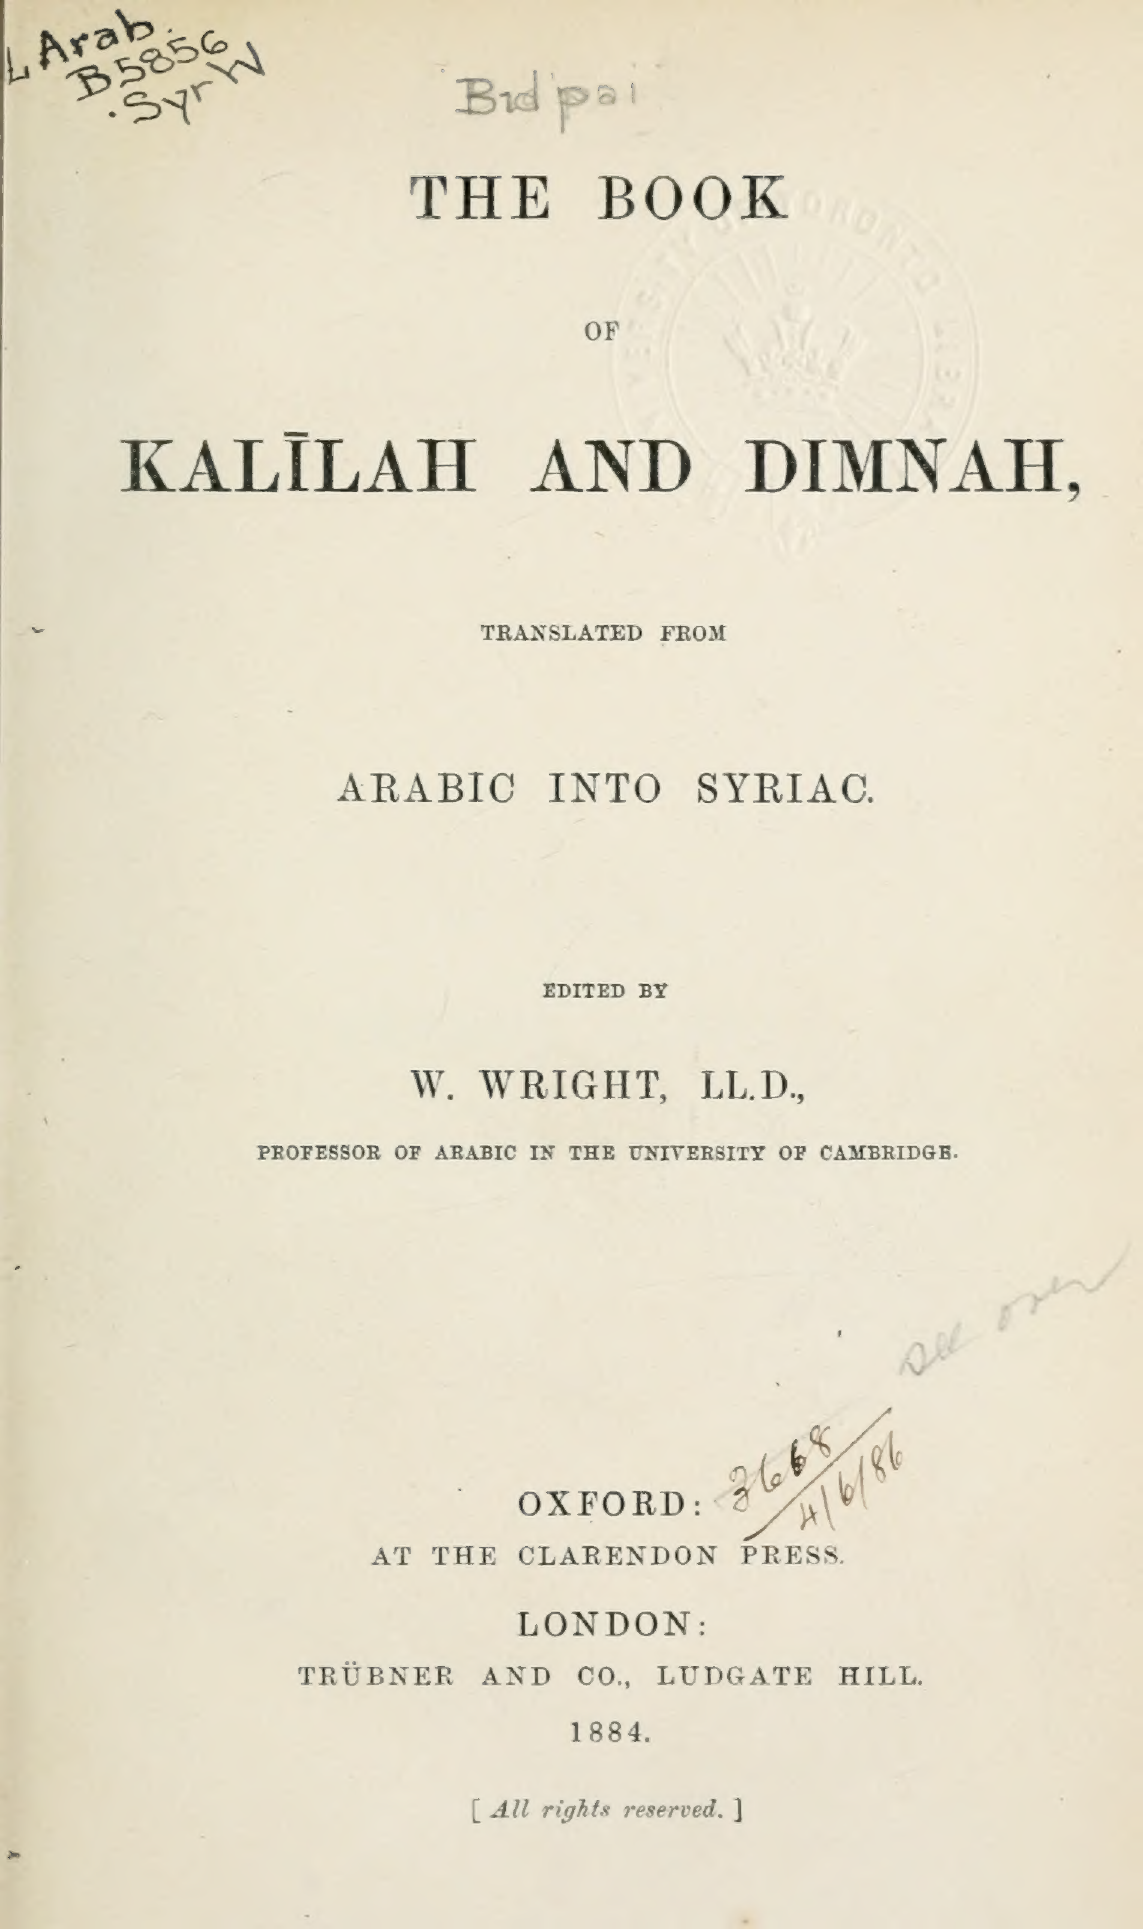 L Arab.
B5856
.SyrW
Bidpai
THE BOOK
OF
KALĪLAH AND DIMNAH,
TRANSLATED FROM
ARABIC INTO SYRIAC.
EDITED BY
W. WRIGHT, LL.D.,
PROFESSOR OF ARABIC IN THE UNIVERSITY OF CAMBRIDGE.
see over
3668
4/6/86
OXFORD:
AT THE CLARENDON PRESS.
LONDON:
TRÜBNER AND CO., LUDGATE HILL.
1884.
[ All rights reserved. ]